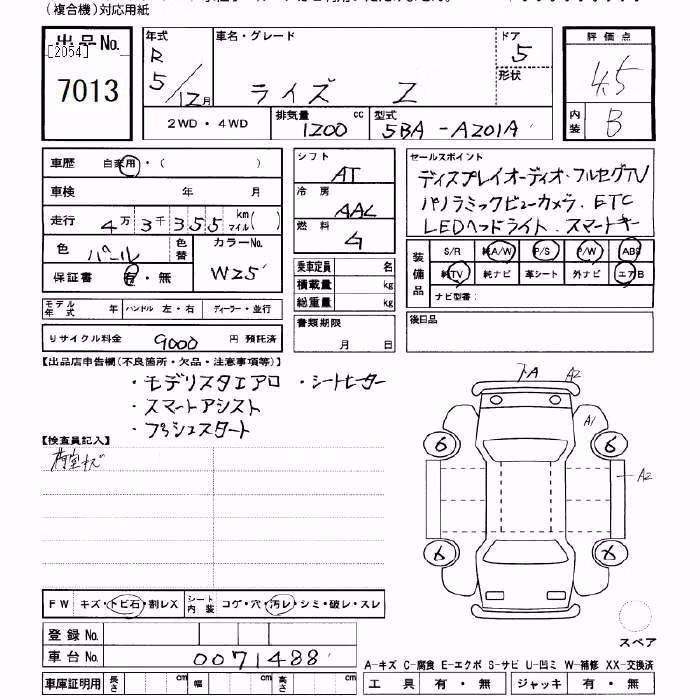 (複合機)対応用紙
出品No.
[2054]
7013
年式
R
5/12月
車名・グレード
ライズ Z
ドア
5
形状
2WD・4WD
排気量 cc
1200
型式
5BA-A201A
評価点
4.5
内装 B
車歴 自家用・( )
車検 年 月
走行 4万3千355 km マイル( )
色 パール
色替
カラーNo.
W25
保証書 有・無
モデル年式 年 ハンドル 左・右 ディーラー・並行
リサイクル料金 9000 円 預託済
シフト AT
冷房 AAC
燃料 ガ
乗車定員 名
積載量 kg
総重量 kg
書類期限
月 日
セールスポイント
ディスプレイオーディオ・フルセグTV
パノラミックビューカメラ. ETC
LEDヘッドライト. スマートキー
装備品
S/R 純A/W P/S P/W ABS
純TV 純ナビ 革シート 外ナビ エアB
ナビ型番:
後日品
【出品店申告欄(不良箇所・欠品・注意事項等)】
・モデリスタエアロ ・シートヒーター
・スマートアシスト
・プッシュスタート
【検査員記入】
荷室キズ
トA A2
A1
6 6
A2
6 6
スペア
FW キズ・トビ石・割レX シート内装 コゲ・穴・汚レ・シミ・破レ・スレ
登録No.
車台No. 0071488
車庫証明用 長さ cm 幅 cm 高さ cm
A-キズ C-腐食 E-エクボ S-サビ U-凹ミ W-補修 XX-交換済
工具 有・無 ジャッキ 有・無